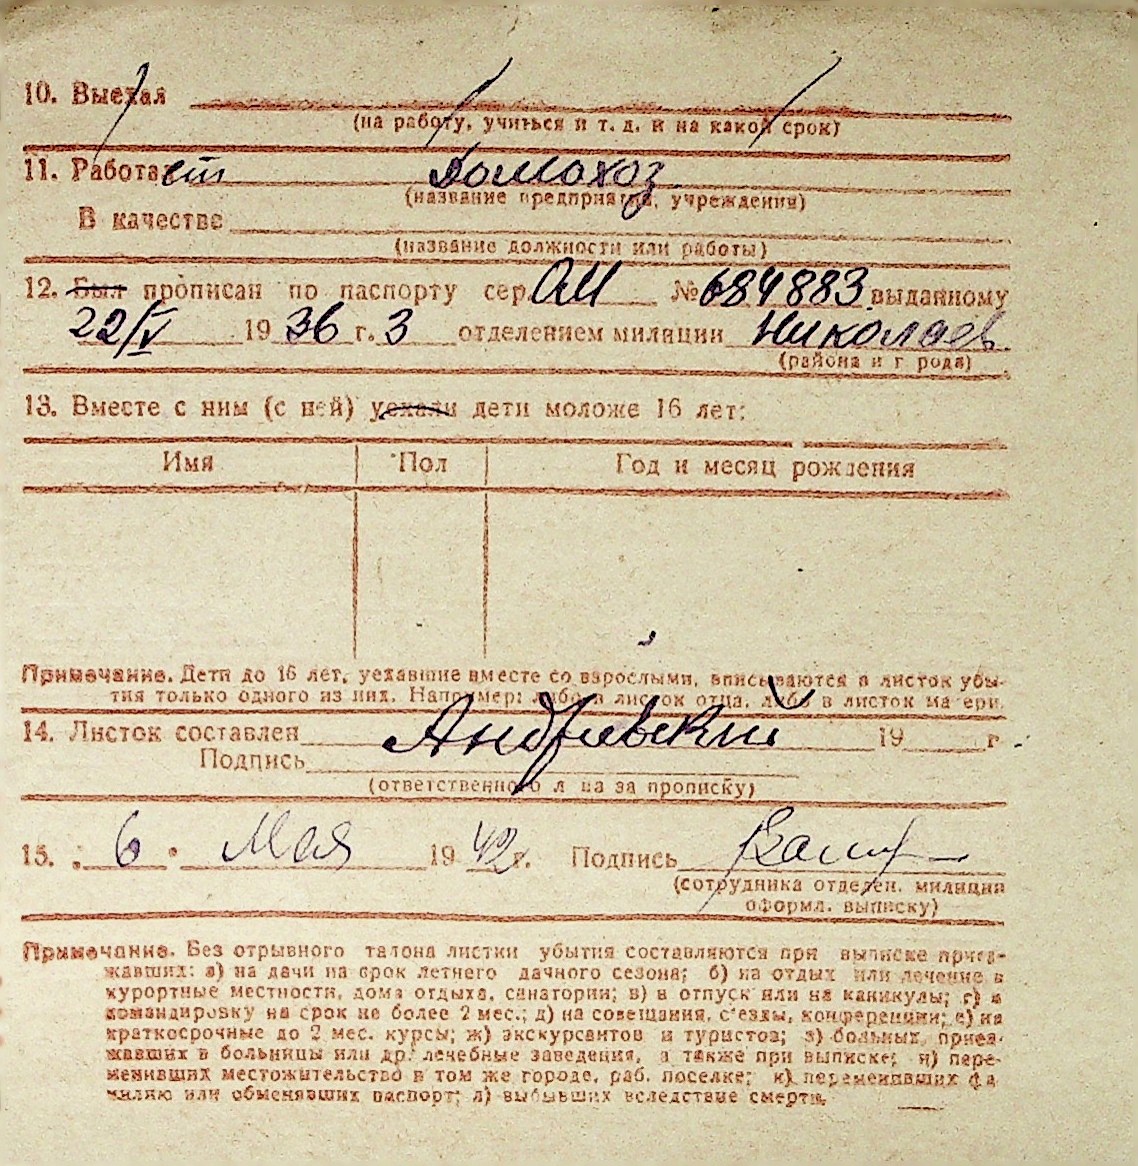 10. Выехал
(на работу, учиться и т. д. и на какой срок)
11. Работает Домохоз
(название предприятия, учреждения)
В качестве
(название должности или работы)
12. Был прописан по паспорту сер. ОМ № 684883 выданному
22/V 1936 г. 3 отделением милиции Николаев
(района и города)
13. Вместе с ним (с ней) уехали дети моложе 16 лет:
Имя Пол Год и месяц рождения
Примечание. Дети до 16 лет, уехавшие вместе со взрослыми, вписываются в листок убы-
тия только одного из них. Например: либо в листок отца, либо в листок матери.
14. Листок составлен 19 г
Андриевский
Подпись
(ответственного лица за прописку)
15. 6 Мая 1942 г. Подпись
(сотрудника отделен. милиции
оформл. выписку)
Примечание. Без отрывного талона листки убытия составляются при выписке приез-
жавших: а) на дачи на срок летнего дачного сезона; б) на отдых или лечение в
курортные местности, дома отдыха, санатории; в) в отпуск или на каникулы; г) в
командировку на срок не более 2 мес.; д) на совещания, с'езды, конференции; е) на
краткосрочные до 2 мес. курсы; ж) экскурсантов и туристов; з) больных, приез-
жавших в больницы или др. лечебные заведения, а также при выписке; и) пере-
менивших местожительство в том же городе, раб. поселке; к) переменивших фа
милию или обменявших паспорт; л) выбывших вследствие смерти.